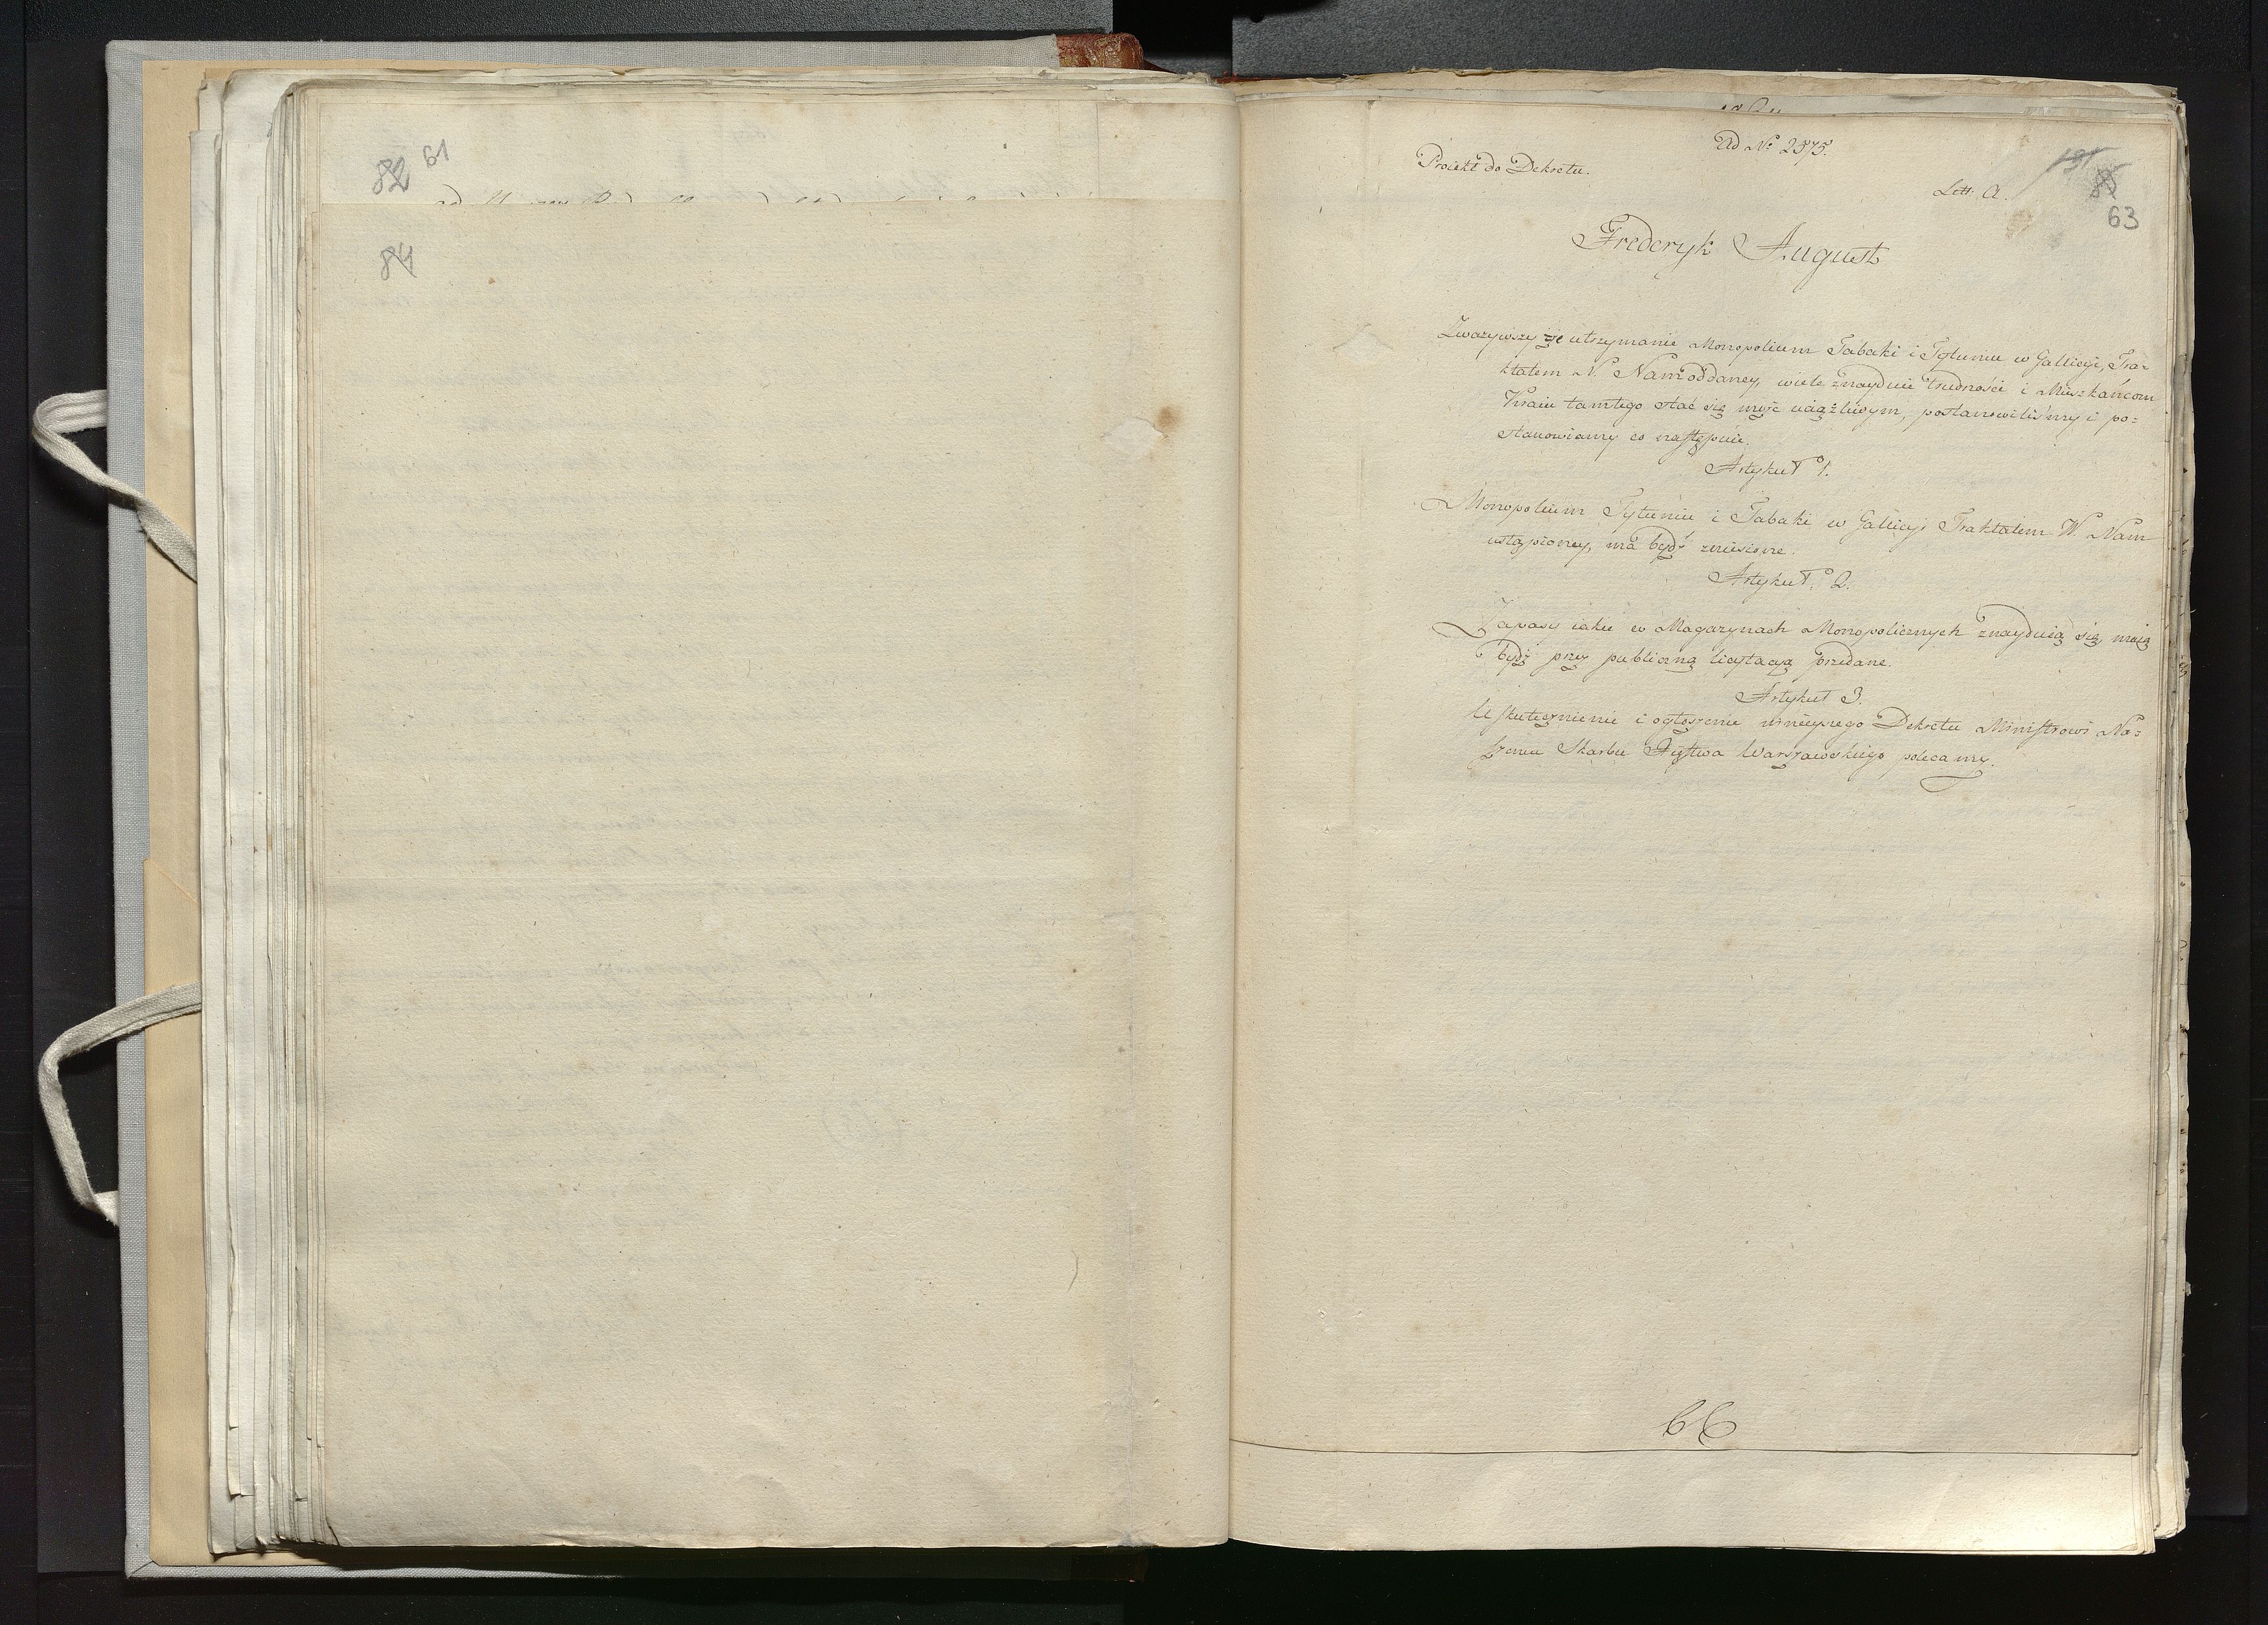 82 61
84
Ad Nº 2375.
Proiekt do Dekretu.
Litt. A.
63
Frederyk August
Zważywszy że utrzymanie Monopolium Tabaki i Tytuniu w Gallicyi, Tra-
ktatem N. Nam oddaney, wiele znayduie trudności i Mieszkańcom
Kraiu tamtego stać się może uciążliwym, postanowiliśmy i po-
stanowiamy co następuie.
Artykuł 1.
Monopolium Tytuniu i Tabaki w Gallicyi Traktatem W. Nam
ustąpioney, ma bydź zniesione.
Artykuł. 2.
Zapasy iakie w Magazynach Monopolicznych znayduią się, maią
bydź przez publiczną licytacyą przedane.
Artykuł 3.
Uskutecznienie i ogłoszenie ninieyszego Dekretu Ministrowi Na-
szemu Skarbu Xięstwa Warszawskiego polecamy.
66